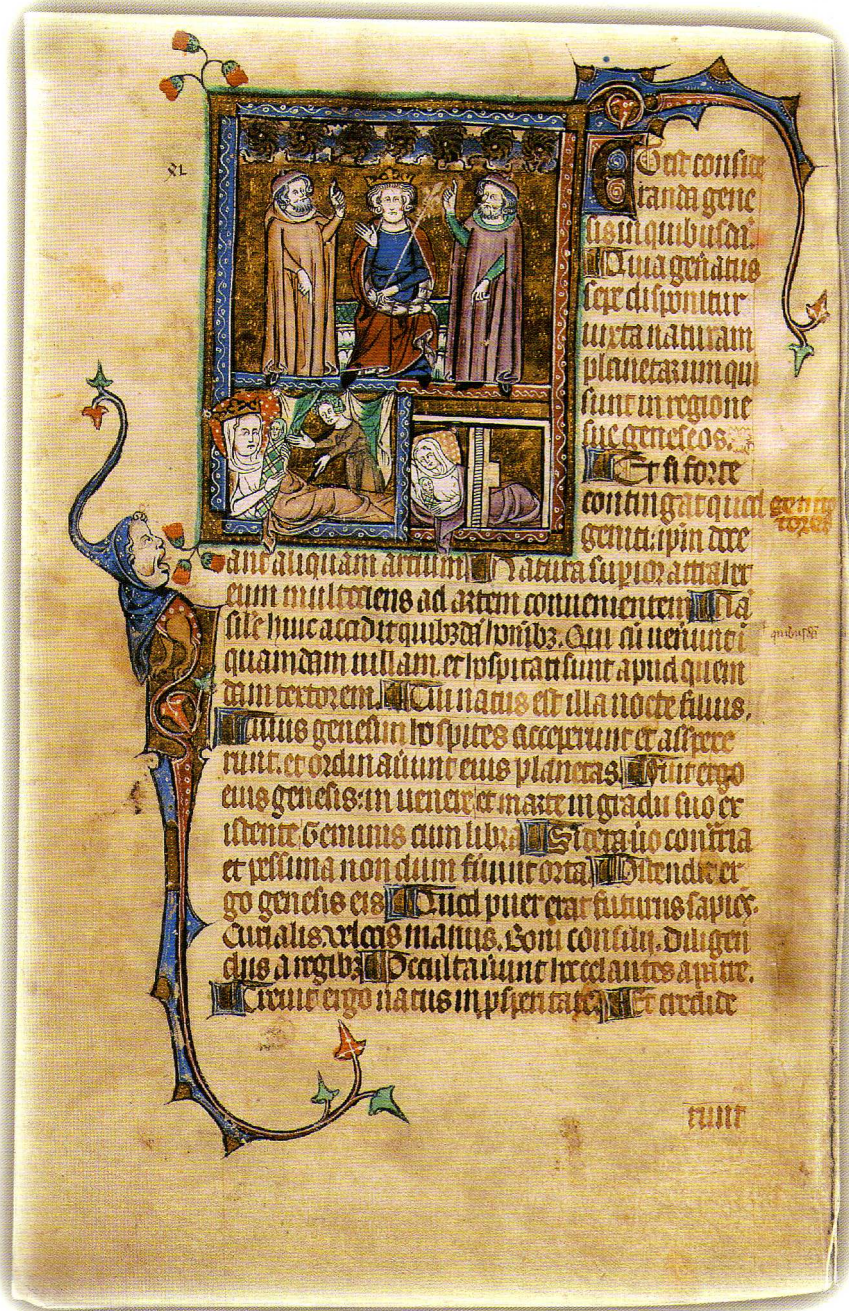 xi
Et est consice
randa gene
sis in quibusdā.
Quia geñatus
sepe disponitur
iuxta naturam
planetarum qui
sunt in regione
sue geneseos.
Et si forte
contingat quod genitores
geniti: ipm doce
ant aliquam artium Natura supior attrahet
eum multociens ad artem convenientem
sile huic accidit quibzdā hoībz. Qui cū venūnt ī quibusdā
quamdam uillam. et hospitati sunt apud quem
dam textorem. Cui natus est illa nocte filius.
Cuius genesim hospites acceperunt et asspexe
runt. et ordinauūnt eius planetas. Fuit ergo
eius genesis: in uenere et marte in gradu suo ex
istente Geminis cum libra Sidera uo contria
et pessima non dum fūunt orta Ostendit er
go genesis eis Quod puer erat futurus sapiēs.
Curialis. velocis manus. Boni consilij. diligen
dus a regibz Occultauūnt hoc celantes a patre.
Creuit ergo natus in pspitate. Et credide
runt